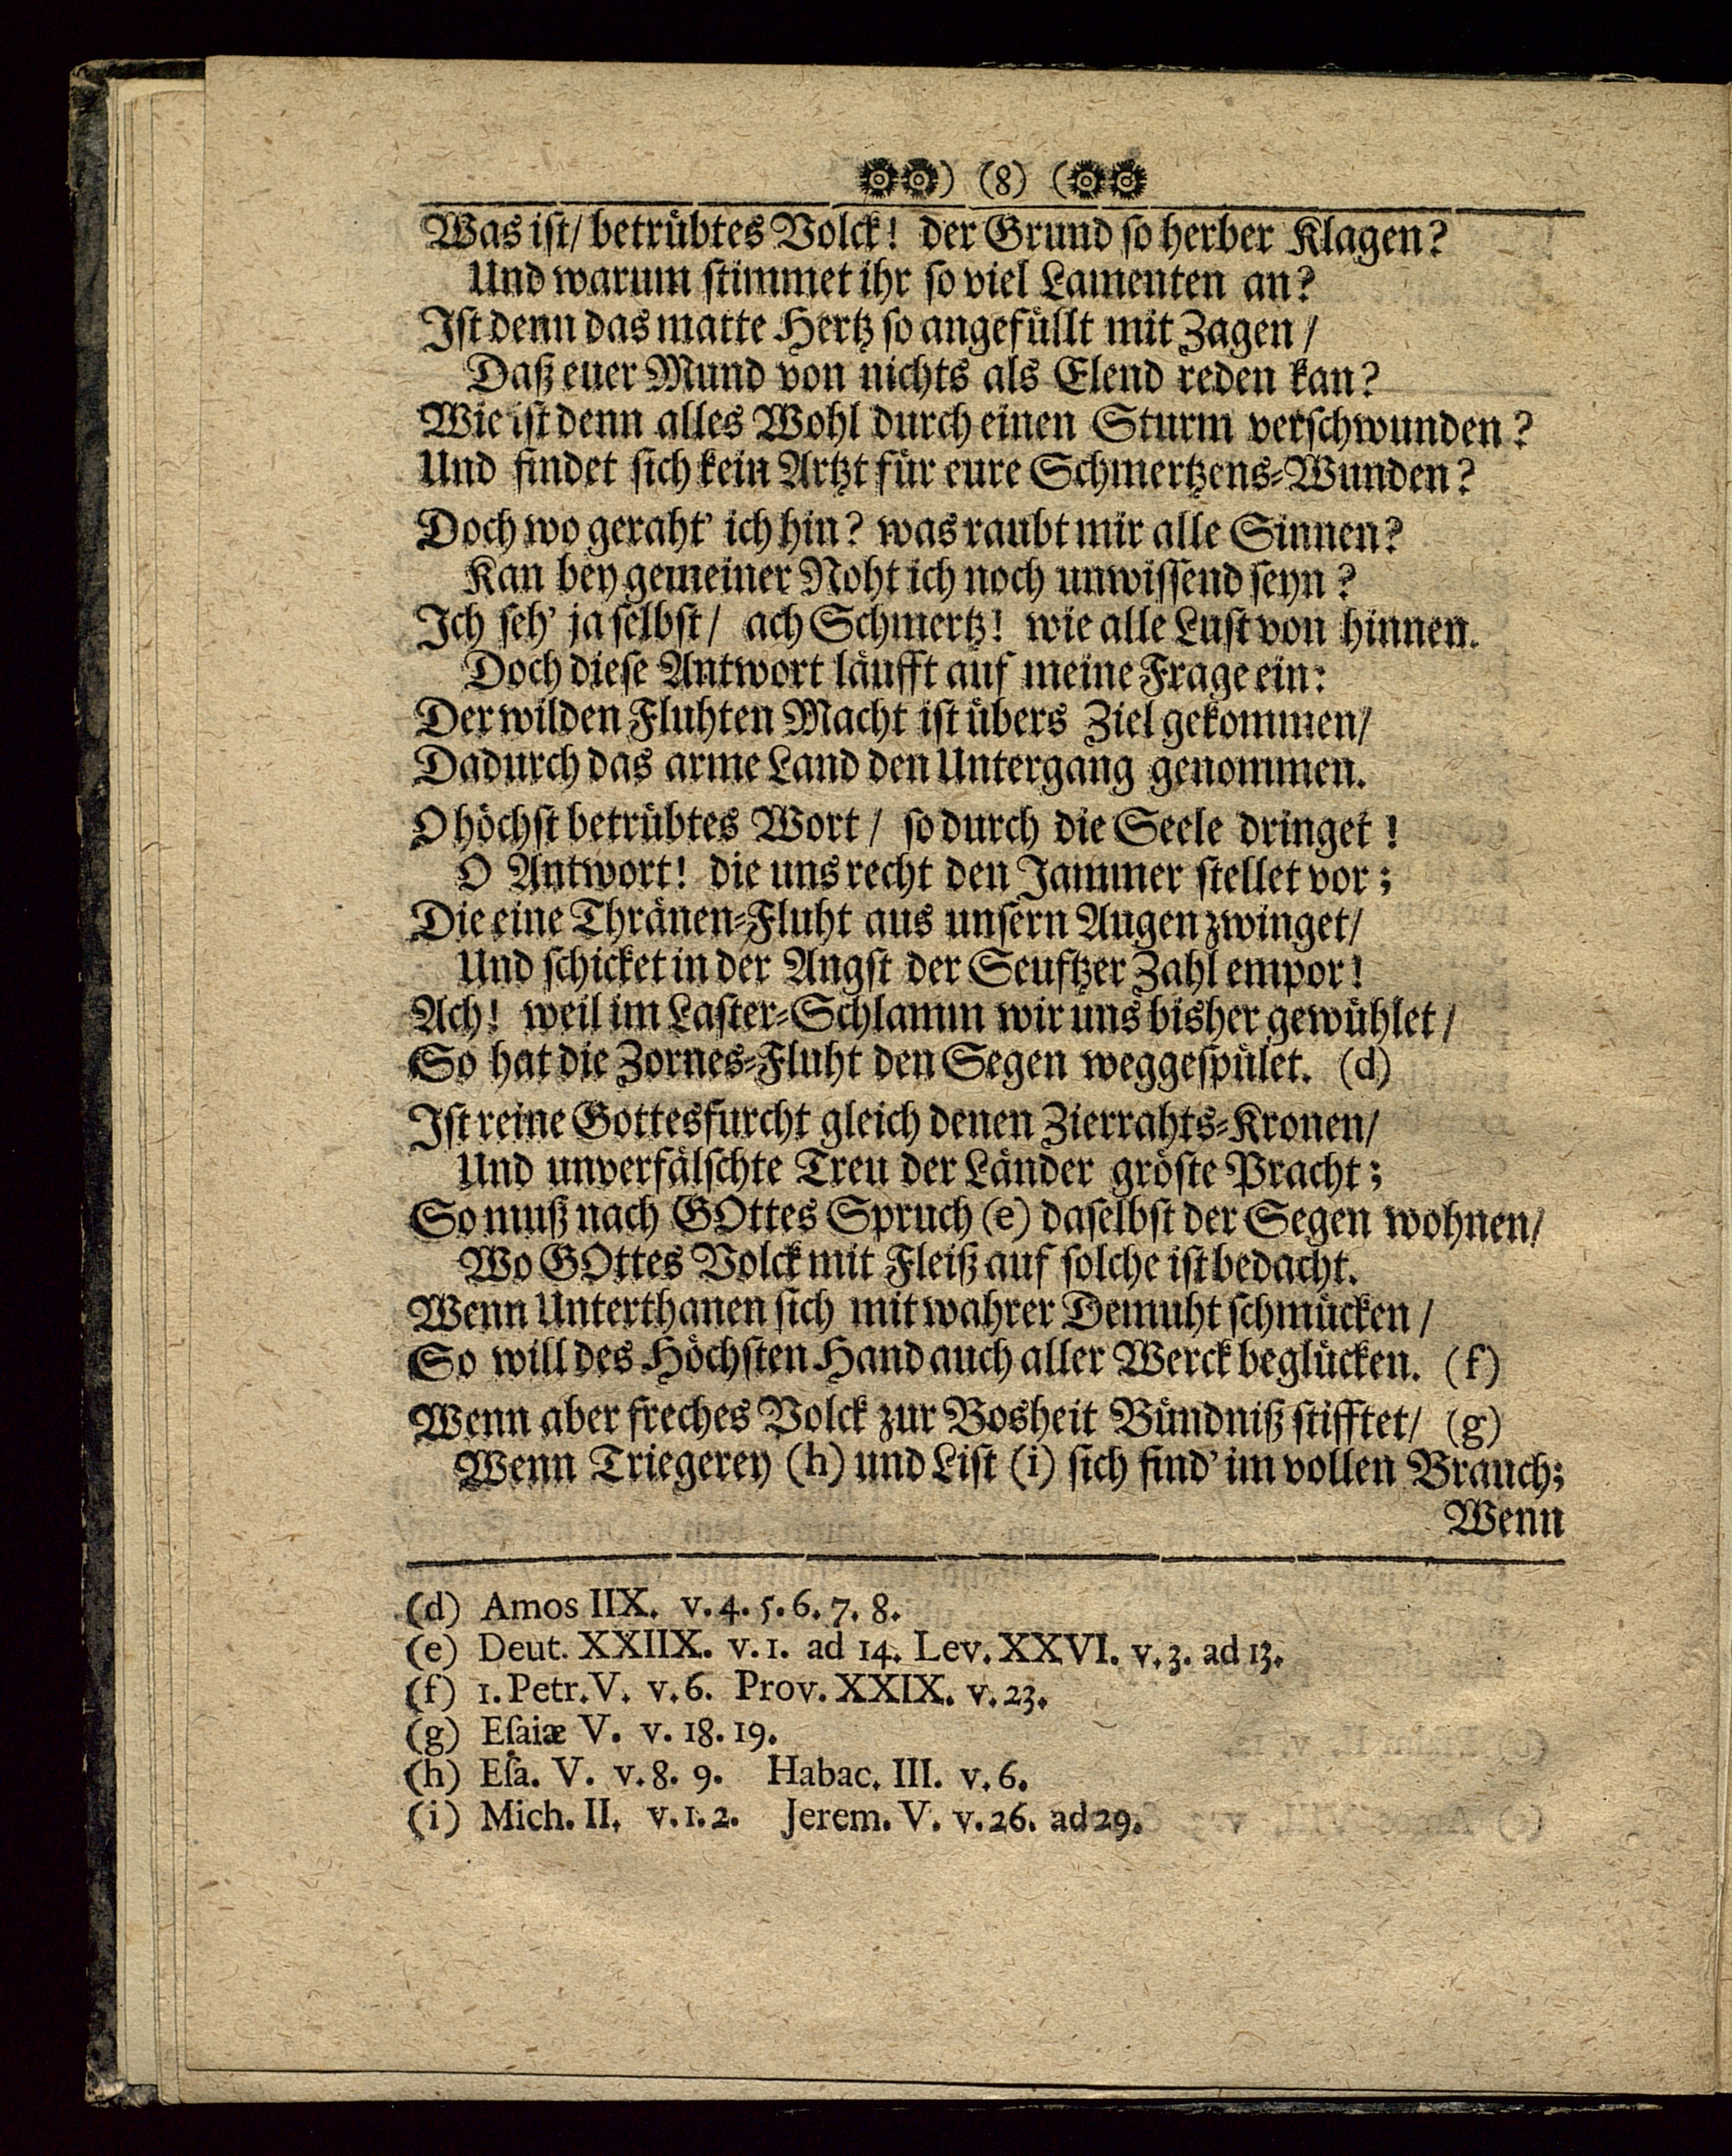 ) (8) (
Was iſt/ betrübtes Volck! der Grund ſo herber Klagen?
Und warum ſtimmet ihr ſo viel Lamenten an?
Iſt denn das matte Hertz ſo angefüllt mit Zagen /
Daß euer Mund von nichts als Elend reden kan?
Wie iſt denn alles Wohl durch einen Sturm verſchwunden?
Und findet ſich kein Artzt für eure Schmertzens-Wunden?
Doch wo geraht' ich hin? was raubt mir alle Sinnen?
Kan bey gemeiner Noht ich noch unwiſſend ſeyn?
Ich ſeh' ja ſelbſt/ ach Schmertz! wie alle Luſt von hinnen.
Doch dieſe Antwort läufft auf meine Frage ein:
Der wilden Fluhten Macht iſt übers Ziel gekommen/
Dadurch das arme Land den Untergang genommen.
O höchſt betrübtes Wort / ſo durch die Seele dringet!
O Antwort! die uns recht den Jammer ſtellet vor;
Die eine Thränen-Fluht aus unſern Augen zwinget/
Und ſchicket in der Angſt der Seuftzer Zahl empor!
Ach! weil im Laſter-Schlamm wir uns bisher gewühlet /
So hat die Zornes-Fluht den Segen weggeſpület. (d)
Iſt reine Gottesfurcht gleich denen Zierrahts-Kronen/
Und unverfälſchte Treu der Länder gröſte Pracht;
So muß nach GOttes Spruch (e) daſelbſt der Segen wohnen/
Wo GOttes Volck mit Fleiß auf ſolche iſt bedacht.
Wenn Unterthanen ſich mit wahrer Demuht ſchmücken /
So will des Höchſten Hand auch aller Werck beglücken. (f)
Wenn aber freches Volck zur Bosheit Bündniß ſtifftet/ (g)
Wenn Triegerey (h) und Liſt (i) ſich find' im vollen Brauch;
Wenn
(d) Amos IIX. v. 4. 5. 6. 7. 8.
(e) Deut. XXIIX. v. 1. ad 14. Lev. XXVI. v. 3. ad 13.
(f) 1. Petr. V. v. 6. Prov. XXIX. v. 23.
(g) Eſaiæ V. v. 18. 19.
(h) Eſa. V. v. 8. 9. Habac. III. v. 6.
(i) Mich. II. v. 1. 2. Jerem. V. v. 26. ad 29.